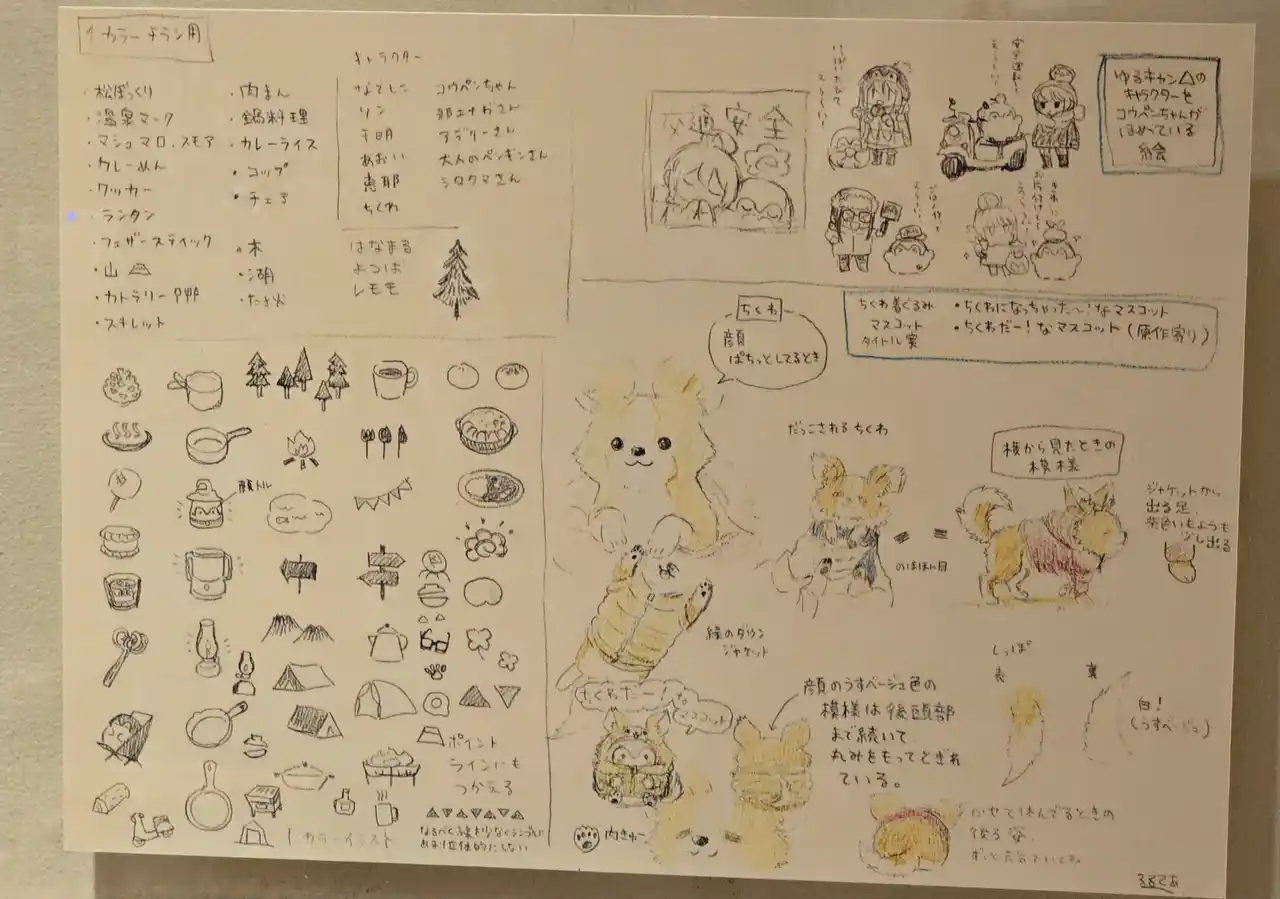 1カラーチラシ用
・松ぼっくり
・温泉マーク
・マシュマロ、スモア
・カレーめん
・クッカー
・ランタン
・フェザースティック
・山
・カトラリー
・スキレット
・肉まん
・鍋料理
・カレーライス
・コップ
・チェア
・木
・湖
・たき火
キャラクター
なでしこ
リン
千明
あおい
恵那
ちくわ
コウペンちゃん
邪エナガさん
アデリーさん
大人のペンギンさん
シロクマさん
はなまる
よつば
レモモ
交通安全
安全運転
ゆるキャン△の
キャラクターを
コウペンちゃんが
ほめている
絵
ちくわ着ぐるみ
マスコット
タイトル案
・ちくわになっちゃった〜!なマスコット
・ちくわだー!なマスコット(原作寄り)
ちくわ
顔
ぱちっとしてるとき
だっこされるちくわ
のほほん目
横から見たときの
模様
ジャケットから
出る足
茶色いもようも
少し出る
緑のダウン
ジャケット
しっぽ
表
裏
白!
(うすベージュ)
ちくわだー!な
マスコット
顔のうすベージュ色の
模様は後頭部
まで続いて
丸みをもってとぎれ
ている。
肉きゅー
ふせて休んでるときの
後ろ姿
顔トル
ポイント
ラインにも
つかえる
1カラーイラスト